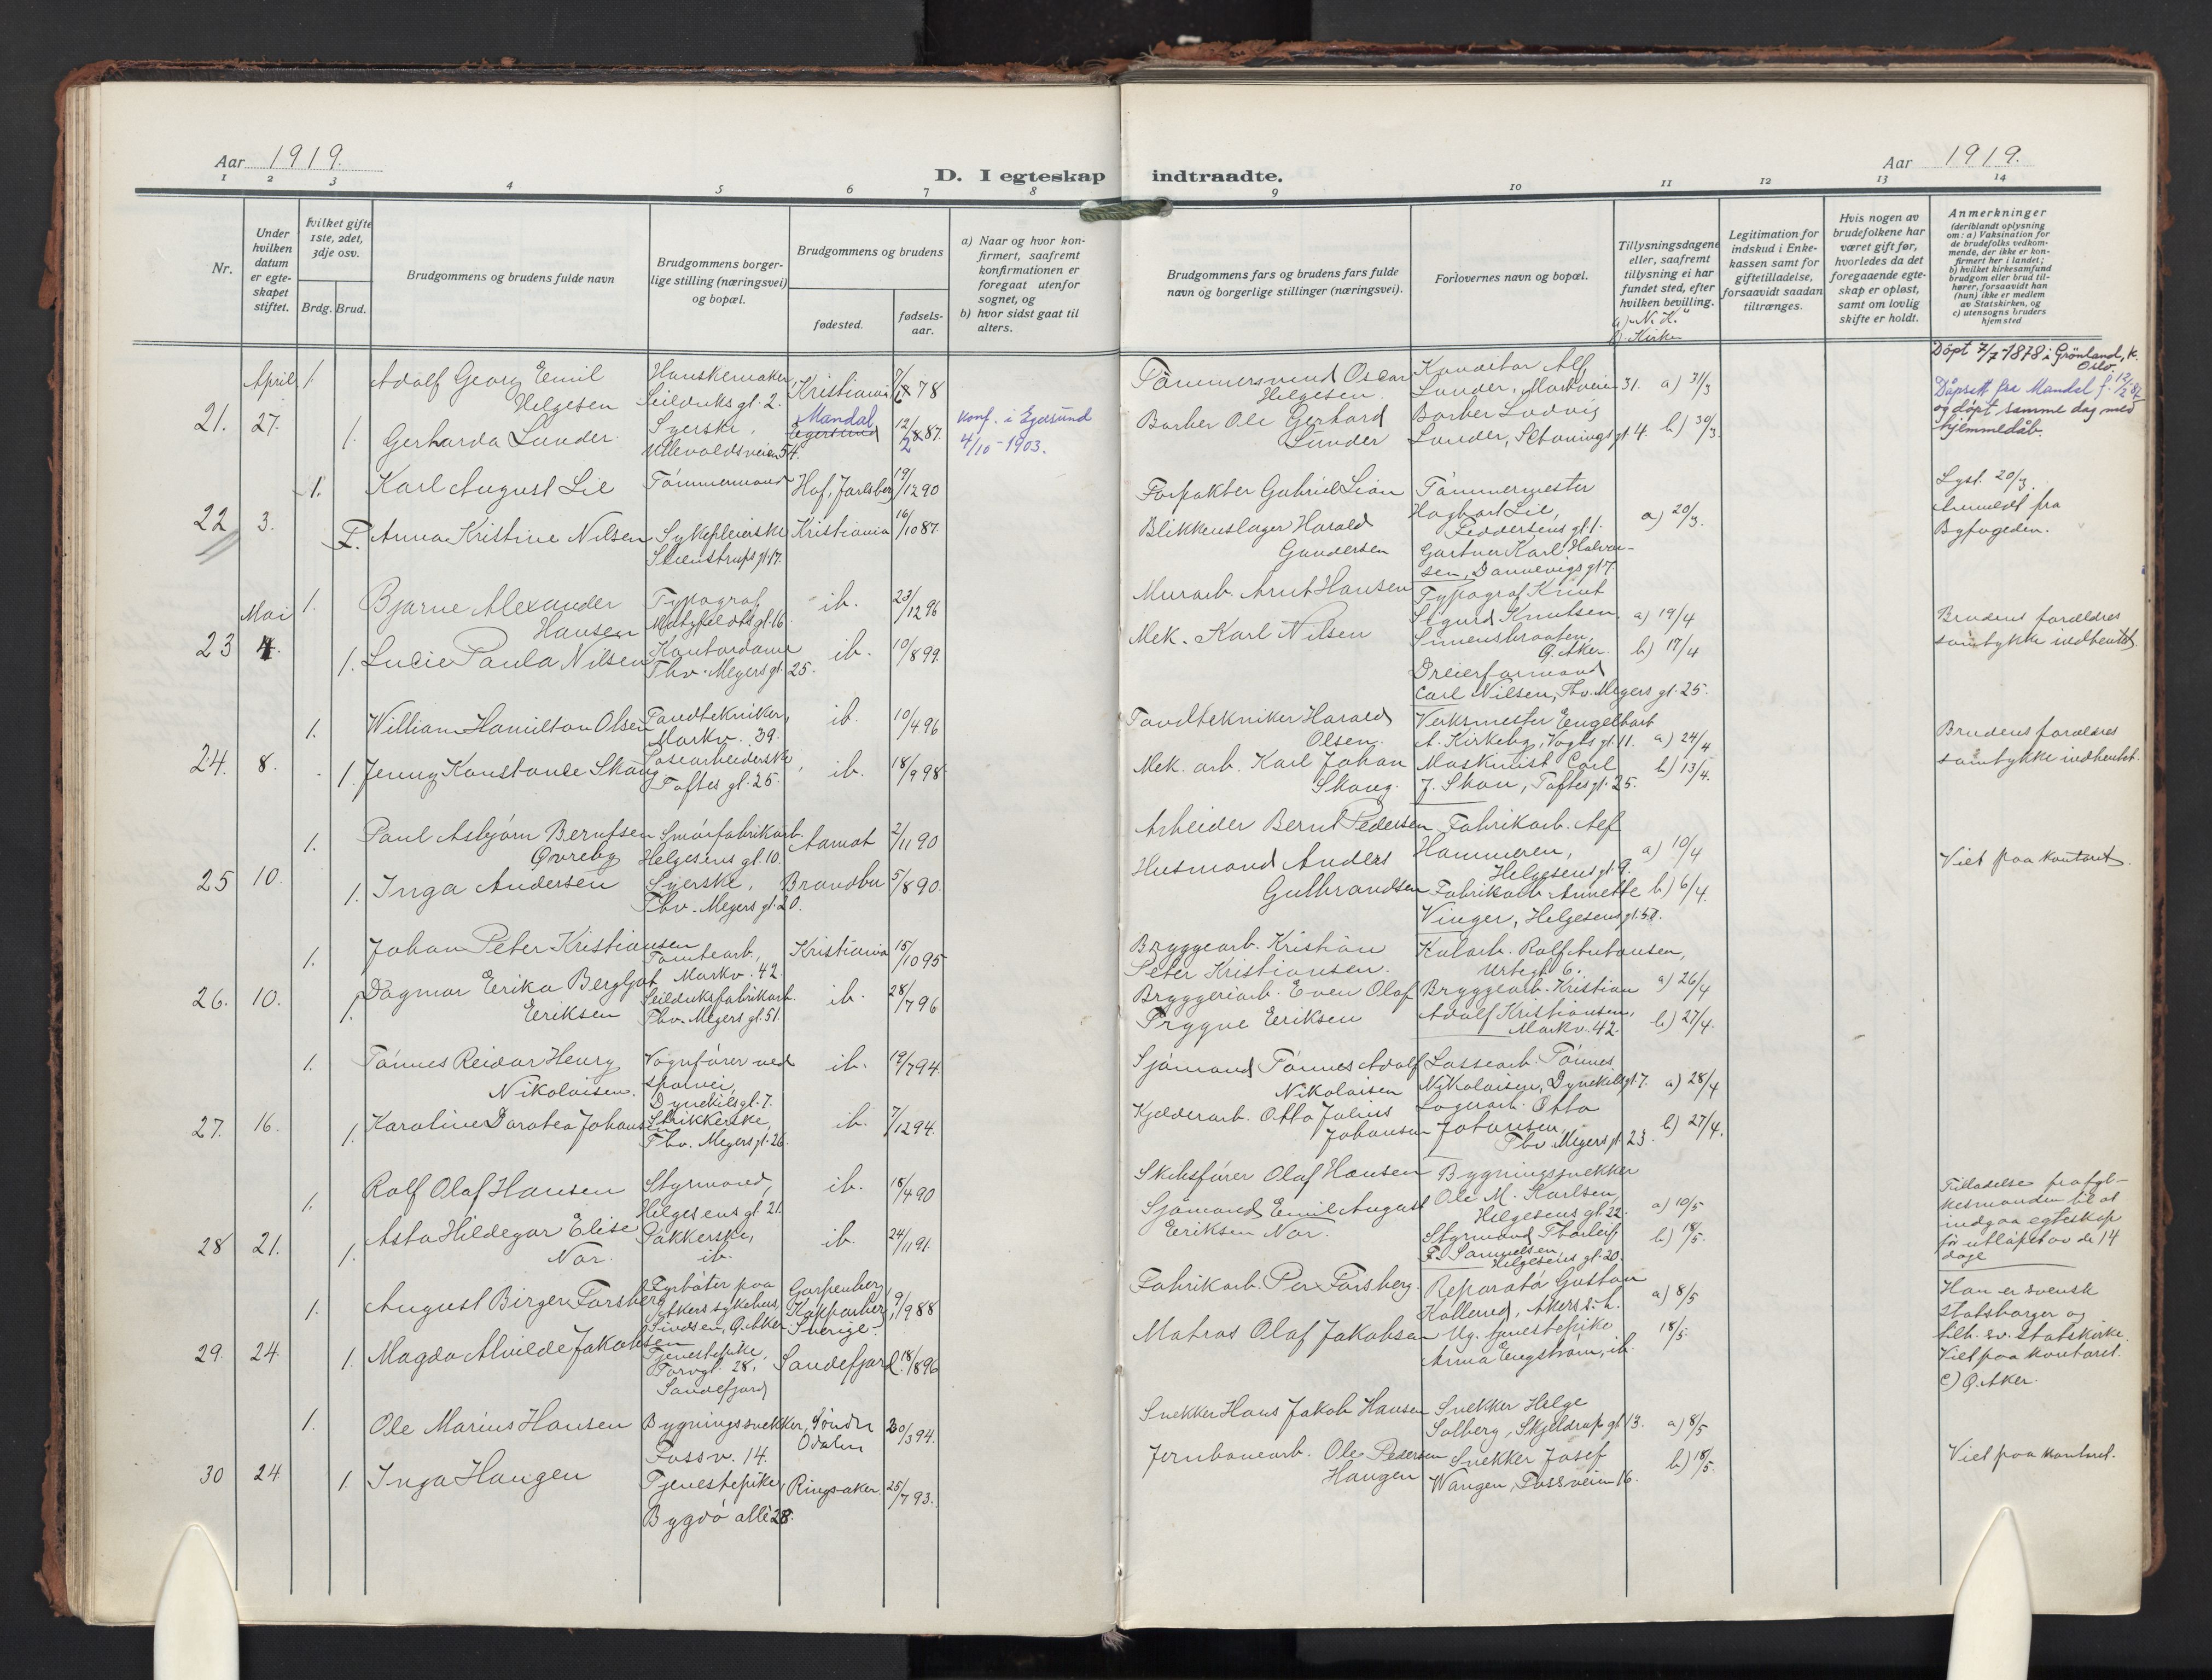 Aar 1919.
D. I egteskap indtraadte.
Aar 1919.
1 2 3 4 5 6 7 8 9 10 11 12 13 14
Nr.
Under
hvilken
datum
er egte-
skapet
stiftet.
Hvilket gifte
1ste, 2det,
3dje osv.
Brdg. Brud.
Brudgommens og brudens fulde navn
Brudgommens borger-
lige stilling (næringsvei)
og bopæl.
Brudgommens og brudens
fødested.
fødsels-
aar.
a) Naar og hvor kon-
firmert, saafremt
konfirmationen er
foregaat utenfor
sognet, og
b) hvor sidst gaat til
alters.
Brudgommens fars og brudens fars fulde
navn og borgerlige stillinger (næringsvei).
Forlovernes navn og bopæl.
Tillysningsdagene
eller, saafremt
tillysning ei har
fundet sted, efter
hvilken bevilling.
a) "N. K."
b) Kirke
Legitimation for
indskud i Enke-
kassen samt for
giftetilladelse,
forsaavidt saadan
tiltrænges.
Hvis nogen av
brudefolkene har
været gift før,
hvorledes da det
foregaaende egte-
skap er opløst,
samt om lovlig
skifte er holdt.
Anmerkninger
(deriblandt oplysning
om: a) Vaksination for
de brudefolks vedkom-
mende, der ikke er kon-
firmert her i landet;
b) hvilket kirkesamfund
brudgom eller brud til-
hører, forsaavidt han
(hun) ikke er medlem
av Statskirken, og
c) utensogns bruders
hjemsted
21.
April
27.
1.
Adolf Georg Emil
Helgesen
Hanskemaker,
Seilduks gt. 2.
Kristiania
78
Tømmersvend Oscar
Helgesen.
Konditor Alf
Lunder, Markveien 31.
a) 31/3
Døpt 7/7-1878 i Grønland, k.
Oslo.
1.
Gerharda Lunder.
Syerske,
Ullevoldsveien 54.
Mandal
Egersund
12/2 87.
konf. i Egersund
4/10-1903.
Barber Ole Gerhard
Lunder
Barber Ludvig
Lunder, Schønings gt. 4.
b) 30/3.
Dåpsatt fra Mandal f. 12/2 87
og døpt samme dag med
hjemmedåb.
22
3.
1.
Karl August Lie
Tømmermand
Hof, Jarlsberg
19/12 90
Forpakter Gabriel Lian
Tømmermester
Hagbart Lie,
Peddersens gt. 1.
a) 20/3.
Lyst 20/3.
Anmeldt fra
Byfogeden.
F.
Anna Kristine Nilsen
Sykepleierske
Steenstrups gt. 17.
Kristiania
16/10 87.
Blikkenslager Harald
Gundersen
Gartner Karl Halvor-
sen, Dannevigs gt 7.
23
Mai
4.
1.
Bjarne Alexander
Hansen
Typograf,
Motzfeldts gt. 16
ib.
23/12 96
Murarb. Arnt Hansen
Typograf Knut
Sigurd Knutsen,
Simensbraaten,
Ø. Aker.
a) 19/4
b) 17/4
Brudens forældres
samtykke indhentet.
1.
Lucie Paula Nilsen
Kontordame
Thv. Meyers gt. 25.
ib.
10/8 99.
Mek. Karl Nilsen
Dreierformand
Carl Nilsen, Thv. Meyers gt. 25.
24.
8.
1.
William Hamilton Olsen
Tandtekniker,
Markv. 39.
ib.
10/4 96
Tandtekniker Harald
Olsen.
Verksmester Engelbart
A. Kirkeby, Vogts gt. 11.
a) 24/4
Brudens forældres
samtykke indhentet.
1.
Jenny Konstanse Skaug
Posearbeiderske,
Toftes gt. 25.
ib.
18/9 98.
Mek. arb. Karl Johan
Skaug.
Maskinist Carl
J. Skau, Toftesgt. 25.
b) 13/4.
25
10.
1.
Paul Asbjørn Berntsen
Øvreby
Smørfabrikarb.
Helgesens gt. 10.
Aamot
2/11 90
Arbeider Bernt Pedersen
Fabrikarb. Alf
Hammeren,
Helgesens gt. 9.
a) 10/4
Viet paa kontoret.
1.
Inga Andersen
Syerske,
Thv. Meyers gt. 20.
Brandbu
5/8 90.
Husmand Anders
Gulbrandsen
Fabrikarb. Annette
Vinger, Helgesens gt. 58.
b) 6/4.
26.
10.
1.
Johan Peter Kristiansen
Tomtearb.,
Markv. 42.
Kristiania
15/10 95
Bryggearb. Kristian
Peter Kristiansen.
Kularb. Rolf Antonsen,
Urtegt. 6.
a) 26/4
1.
Dagmar Erika Bergljot
Eriksen
Seilduksfabrikarb.
Thv. Meyers gt. 51.
ib.
28/7 96
Bryggeriarb. Even Olaf
Trygve Eriksen
Bryggearb. Kristian
Adolf Kristiansen,
Markv. 42.
b) 27/4.
27.
16.
1.
Tønnes Reidar Henry
Nikolaisen.
Vognfører ved
sporvei,
Dynekilsgt. 7.
ib.
19/7 94.
Sjømand Tønnes Adolf
Nikolaisen
Lossearb. Tønnes
Nikolaisen, Dynekilsgt. 7.
a) 28/4
1.
Karoline Dorotea Johansen
Strikkerske,
Thv. Meyers gt. 26.
ib.
7/12 94.
Kjelderarb. Otto Julius
Johansen
Lagerarb. Otto
Johansen,
Thv. Meyers gt. 23.
b) 27/4.
28
21.
1.
Rolf Olaf Hansen
Styrmand,
Helgesens gt. 21.
ib.
18/4 90
Skibsfører Olaf Hansen
Bygningssnekker
Ole M. Karlsen,
Helgesens gt. 22.
a) 10/5
Tilladelse fra fyl-
kesmanden til at
indgaa egteskap
før utløpet av de 14
dage
1.
Asta Hildegar Elise
Nor.
Pakkerske,
ib.
ib.
24/11 91.
Sjømand Emil August
Eriksen Nor.
Styrmand Thorleif
F. Samuelsen,
Helgesens gt. 20.
b) 18/5.
29.
24.
1.
August Birger Forsberg
Fyrbøter paa
Akers sykehus,
Sindsen, Ø. Aker.
Garpenberg,
Kopparberg,
Sverige.
9/9 88
Fabrikarb. Per Forsberg.
Reparatør Gustav
Kollerud, Akers s.h.
a) 8/5
Han er svensk
statsborger og
tilh. sv. statskirke.
Viet paa kontoret.
c) Ø. Aker.
1.
Magda Alvilde Jakobsen
Tjenestepike,
Torvgt. 28,
Sandefjord
Sandefjord.
18/8 96
Matros Olaf Jakobsen
Ug. tjenestepike
Anna Engstrøm, ib.
18/5.
30
24
1.
Ole Marius Hansen
Bygningssnekker,
Fossv. 14.
Søndre
Odalen
30/3 94.
Snekker Hans Jakob Hansen
Snekker Helge
Solberg, Skjeldrups gt. 13.
a) 8/5
Viet paa kontoret.
1.
Inga Haugen
Tjenestepike,
Bygdø allé 28.
Ringsaker.
25/7 93.
Jernbanearb. Ole Pedersen
Haugen
Snekker Josef
Wangen, Fossveien 16.
b) 18/5.